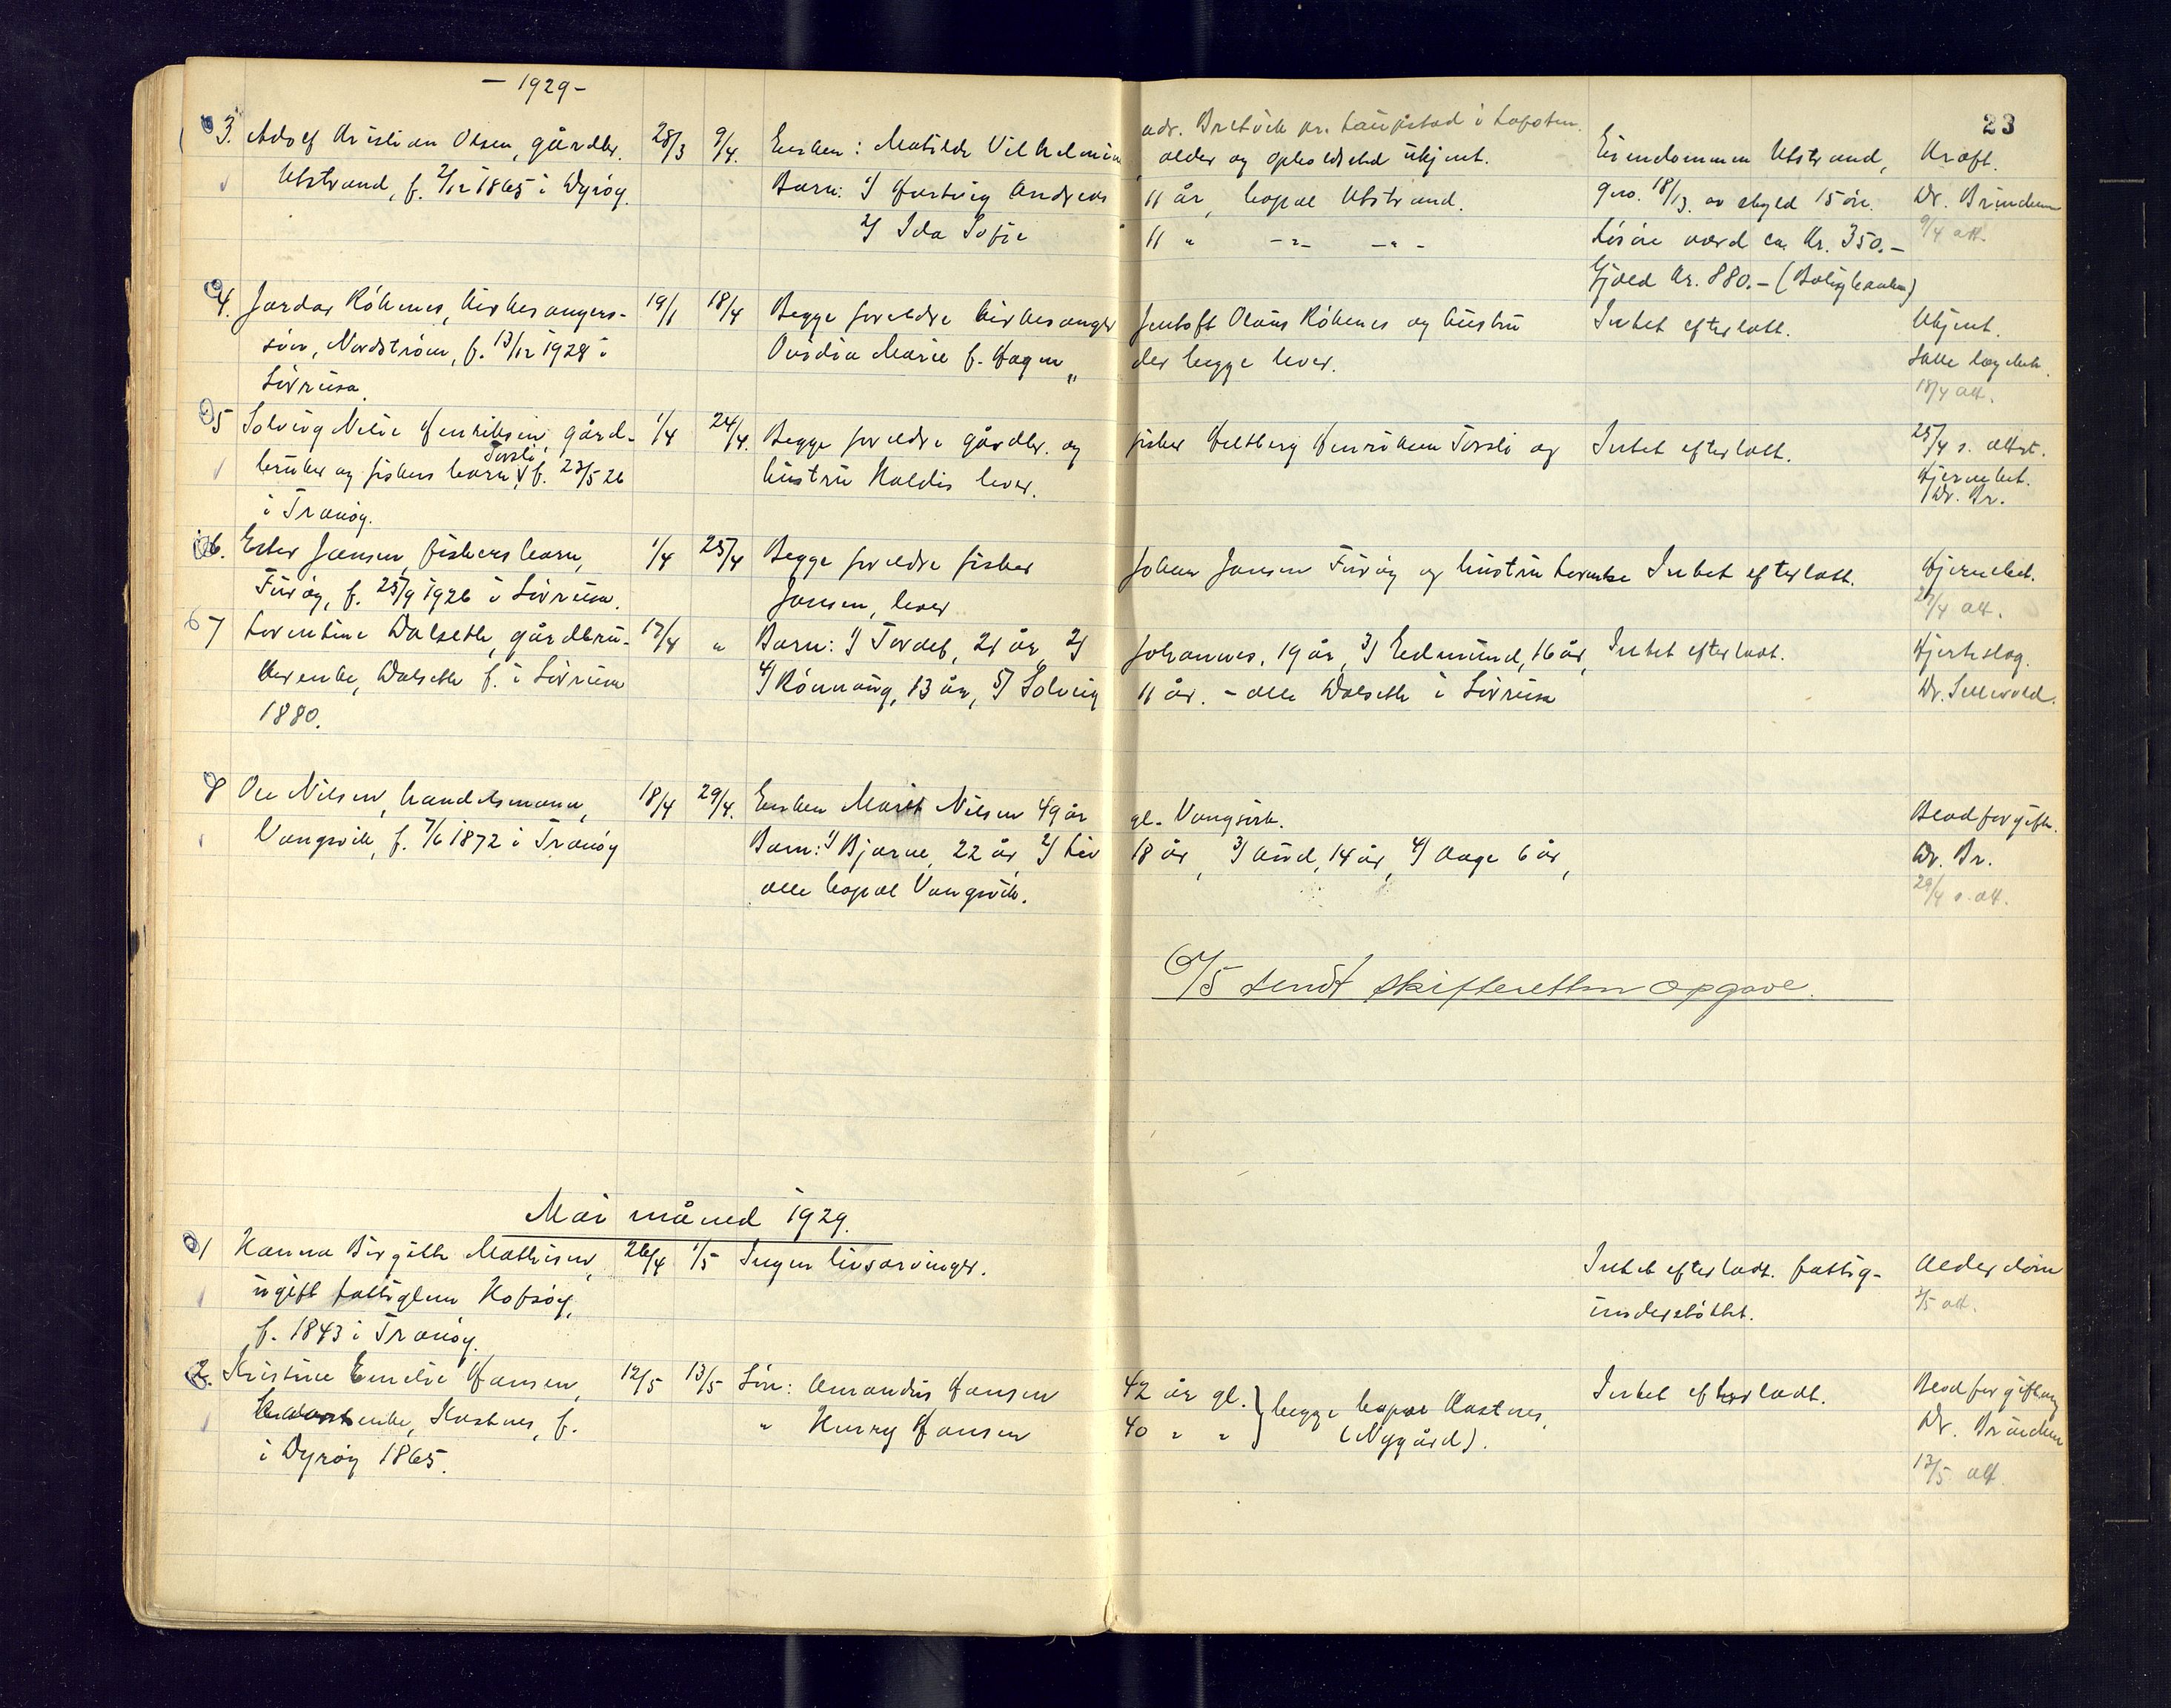 - 1929 -
23
3. Adolf Kristian Olsen, gårdbr. 28/3 9/4. Enken: Matilde Vilhelmine adr. Bretvik pr. Laupstad i Lofoten.
alder og opholdsted ukjent. Eiendommen Utstrand, Kræft.
Utstrand, f. 2/12 1865 i Dyrøy. Barn: 1/ Hartvig Andreas 11 år, bopæl Utstrand. gno. 18/13. av skyld 15 øre. Dr. Brinchm
2/ Ida Sofie 11 " -"- -"- Løsøre værd ca. kr. 350.- 9/4 att.
Gjæld kr. 880.- (Boligbanken)
4. Jardar Röknes, kirkesangers- 19/1 18/4 Begge foreldre kirkesanger Jentoft Olaus Röknes og hustru Intet efterlatt. Ukjent.
søn, Nordstraum, f. 13/12 1928 i Ovidia Marie f. Hagen " der begge lever. Salle lægebeh.
Sørreisa. 18/4 att.
5 Solveig Nelie Henriksen, gård- 1/4 24/4. Begge foreldre gårdbr. og fisker Heltberg Henriksen Torsli og Intet efterlatt. 25/4 s. attst.
bruker og fiskers barn, Torsli, f. 23/5 26 hustru Haldis lever. Hjernebet.
i Tranøy. Dr. Br.
6. Ester Jansen, fiskers barn, 1/4 25/4 Begge foreldre fisker Johan Jansen Furøy og hustru Lorentse Intet efterlatt. Hjernebet.
Furøy, f. 25/9 1926 i Sørreisa. Jansen, lever 27/4 att.
7 Lorentine Dalseth, gårdbru- 17/4 " Barn: 1/ Torleif, 21 år, 2/ Johannes, 19 år, 3/ Edmund, 16 år, Intet efterladt. Hjerteslag.
kerenke, Dalseth f. i Sørreisa 4/ Rönnaug, 13 år, 5/ Solveig 11 år. - alle Dalseth i Sørreisa Dr. Sellevold.
1880.
8 Ole Nilsen, handelsmann, 18/4 29/4. Enken Marit Nilsen 49 år gl. Vangsvik. Blodforgiftn.
Vangsvik, f. 7/6 1872 i Tranøy Barn: 1/ Bjarne, 22 år, 2/ Liv 18 år, 3/ Aud, 14 år, 4/ Aage 6 år, Dr. Br.
alle bopæl Vangsvik. 29/4 s. att.
6/5 sendt skifteretten opgave.
Mai måned 1929.
1 Hanna Birgitte Mathisen, 26/4 1/5 Ingen livsarvinger. Intet efterladt. fattig- Alderdom
ugift fattiglem Hofsøy, understøttet. 2/5 att.
f. 1843 i Tranøy.
2. Kristine Emelie Hansen, 12/5 13/5 Søn: Amandus Hansen 42 år gl. } begge bopæl Kastnes, Intet efterladt. Blodforgiftning
enke, Kastnes, f. " Henry Hansen 40 " " (Nygård). Dr. Brinchm
i Dyrøy 1865. 13/5 att.